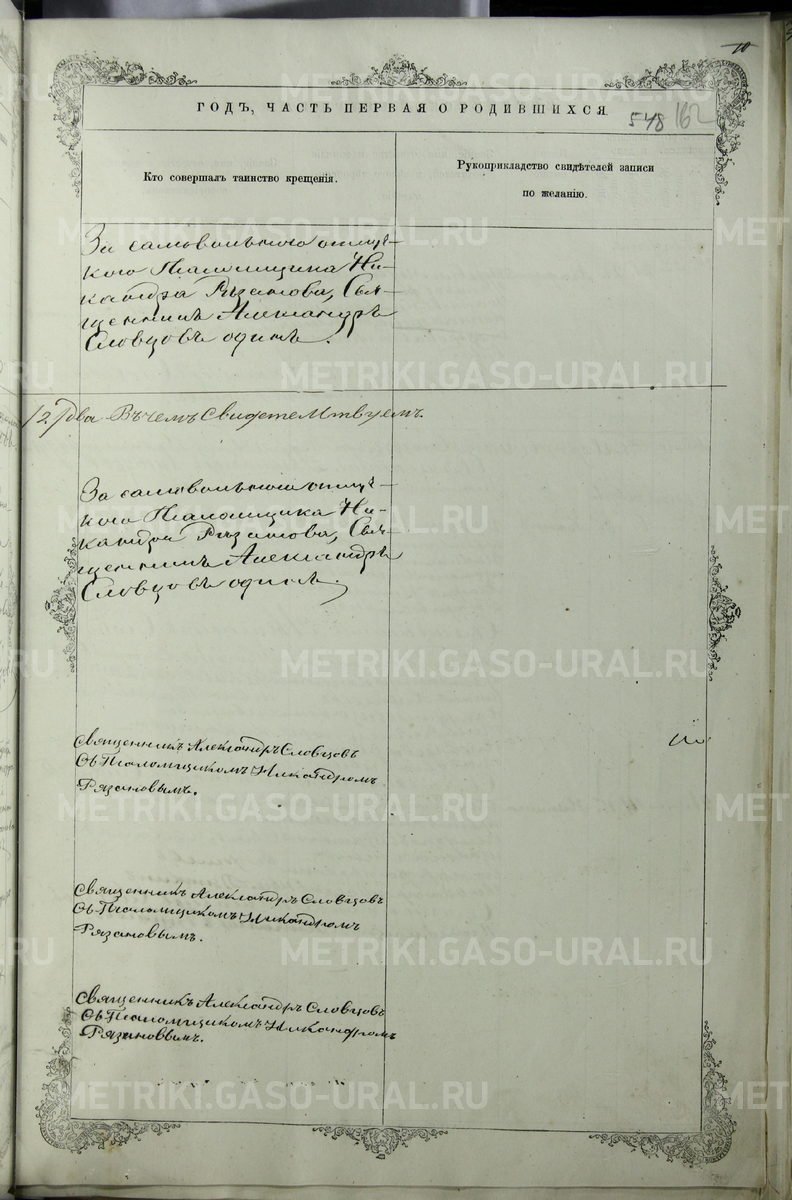 10
ГОДЪ, ЧАСТЬ ПЕРВАЯ О РОДИВШИХСЯ.
548 162
Кто совершалъ таинство крещенія.
Рукоприкладство свидѣтелей записи
по желанію.
За самовольною отлуч-
кою Псаломщика Ни-
кандра Рязанова, Свя-
щенникъ Александръ
Словцовъ одинъ.
12. два Въ чемъ Свидетельствуемъ.
За самовольною отлуч-
кою Псаломщика Ни-
кандра Рязанова, Свя-
щенникъ Александръ
Словцовъ одинъ.
Священникъ Александръ Словцовъ
Съ Псаломщикомъ Никандромъ
Рязановымъ.
Священникъ Александръ Словцовъ
Съ Псаломщикомъ Никандромъ
Рязановымъ.
Священникъ Александръ Словцовъ
Съ Псаломщикомъ Никандромъ
Рязановымъ.
METRIKI.GASO-URAL.RU